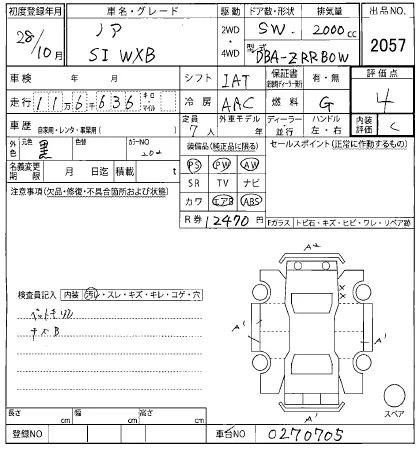 初度登録年月 車名・グレード 駆動 ドア数・形状 排気量 出品NO.
28/10月 ノア SI WXB 2WD・4WD SW. 2000cc 2057
型式 DBA-ZRR80W
車検 年 月 シフト IAT 保証書 有・無 評価点
走行 11万6千636 キロ・マイル 冷房 AAC 燃料 G 4
車歴 自家用・レンタ・事業用( ) 定員 7人 外車モデル 年 ディーラー・並行 ハンドル 左・右 内装評価 C
外色 元色 黒 色替 カラーNO 202 装備品(純正品に限る) セールスポイント(正常に作動するもの)
名義変更期限 月 日迄 積載 t PS PW AW
注意事項(欠品・修復・不具合箇所および状態) SR TV ナビ
カワ エアB ABS
R券 12470円 Fガラス トビ石・キズ・ヒビ・ワレ・リペア跡
A2
検査員記入 内装 汚レ・スレ・キズ・キレ・コゲ・穴
A' A'
チズB
A' スペア
長さ cm 幅 cm 高さ cm
登録NO 車台NO 0270705